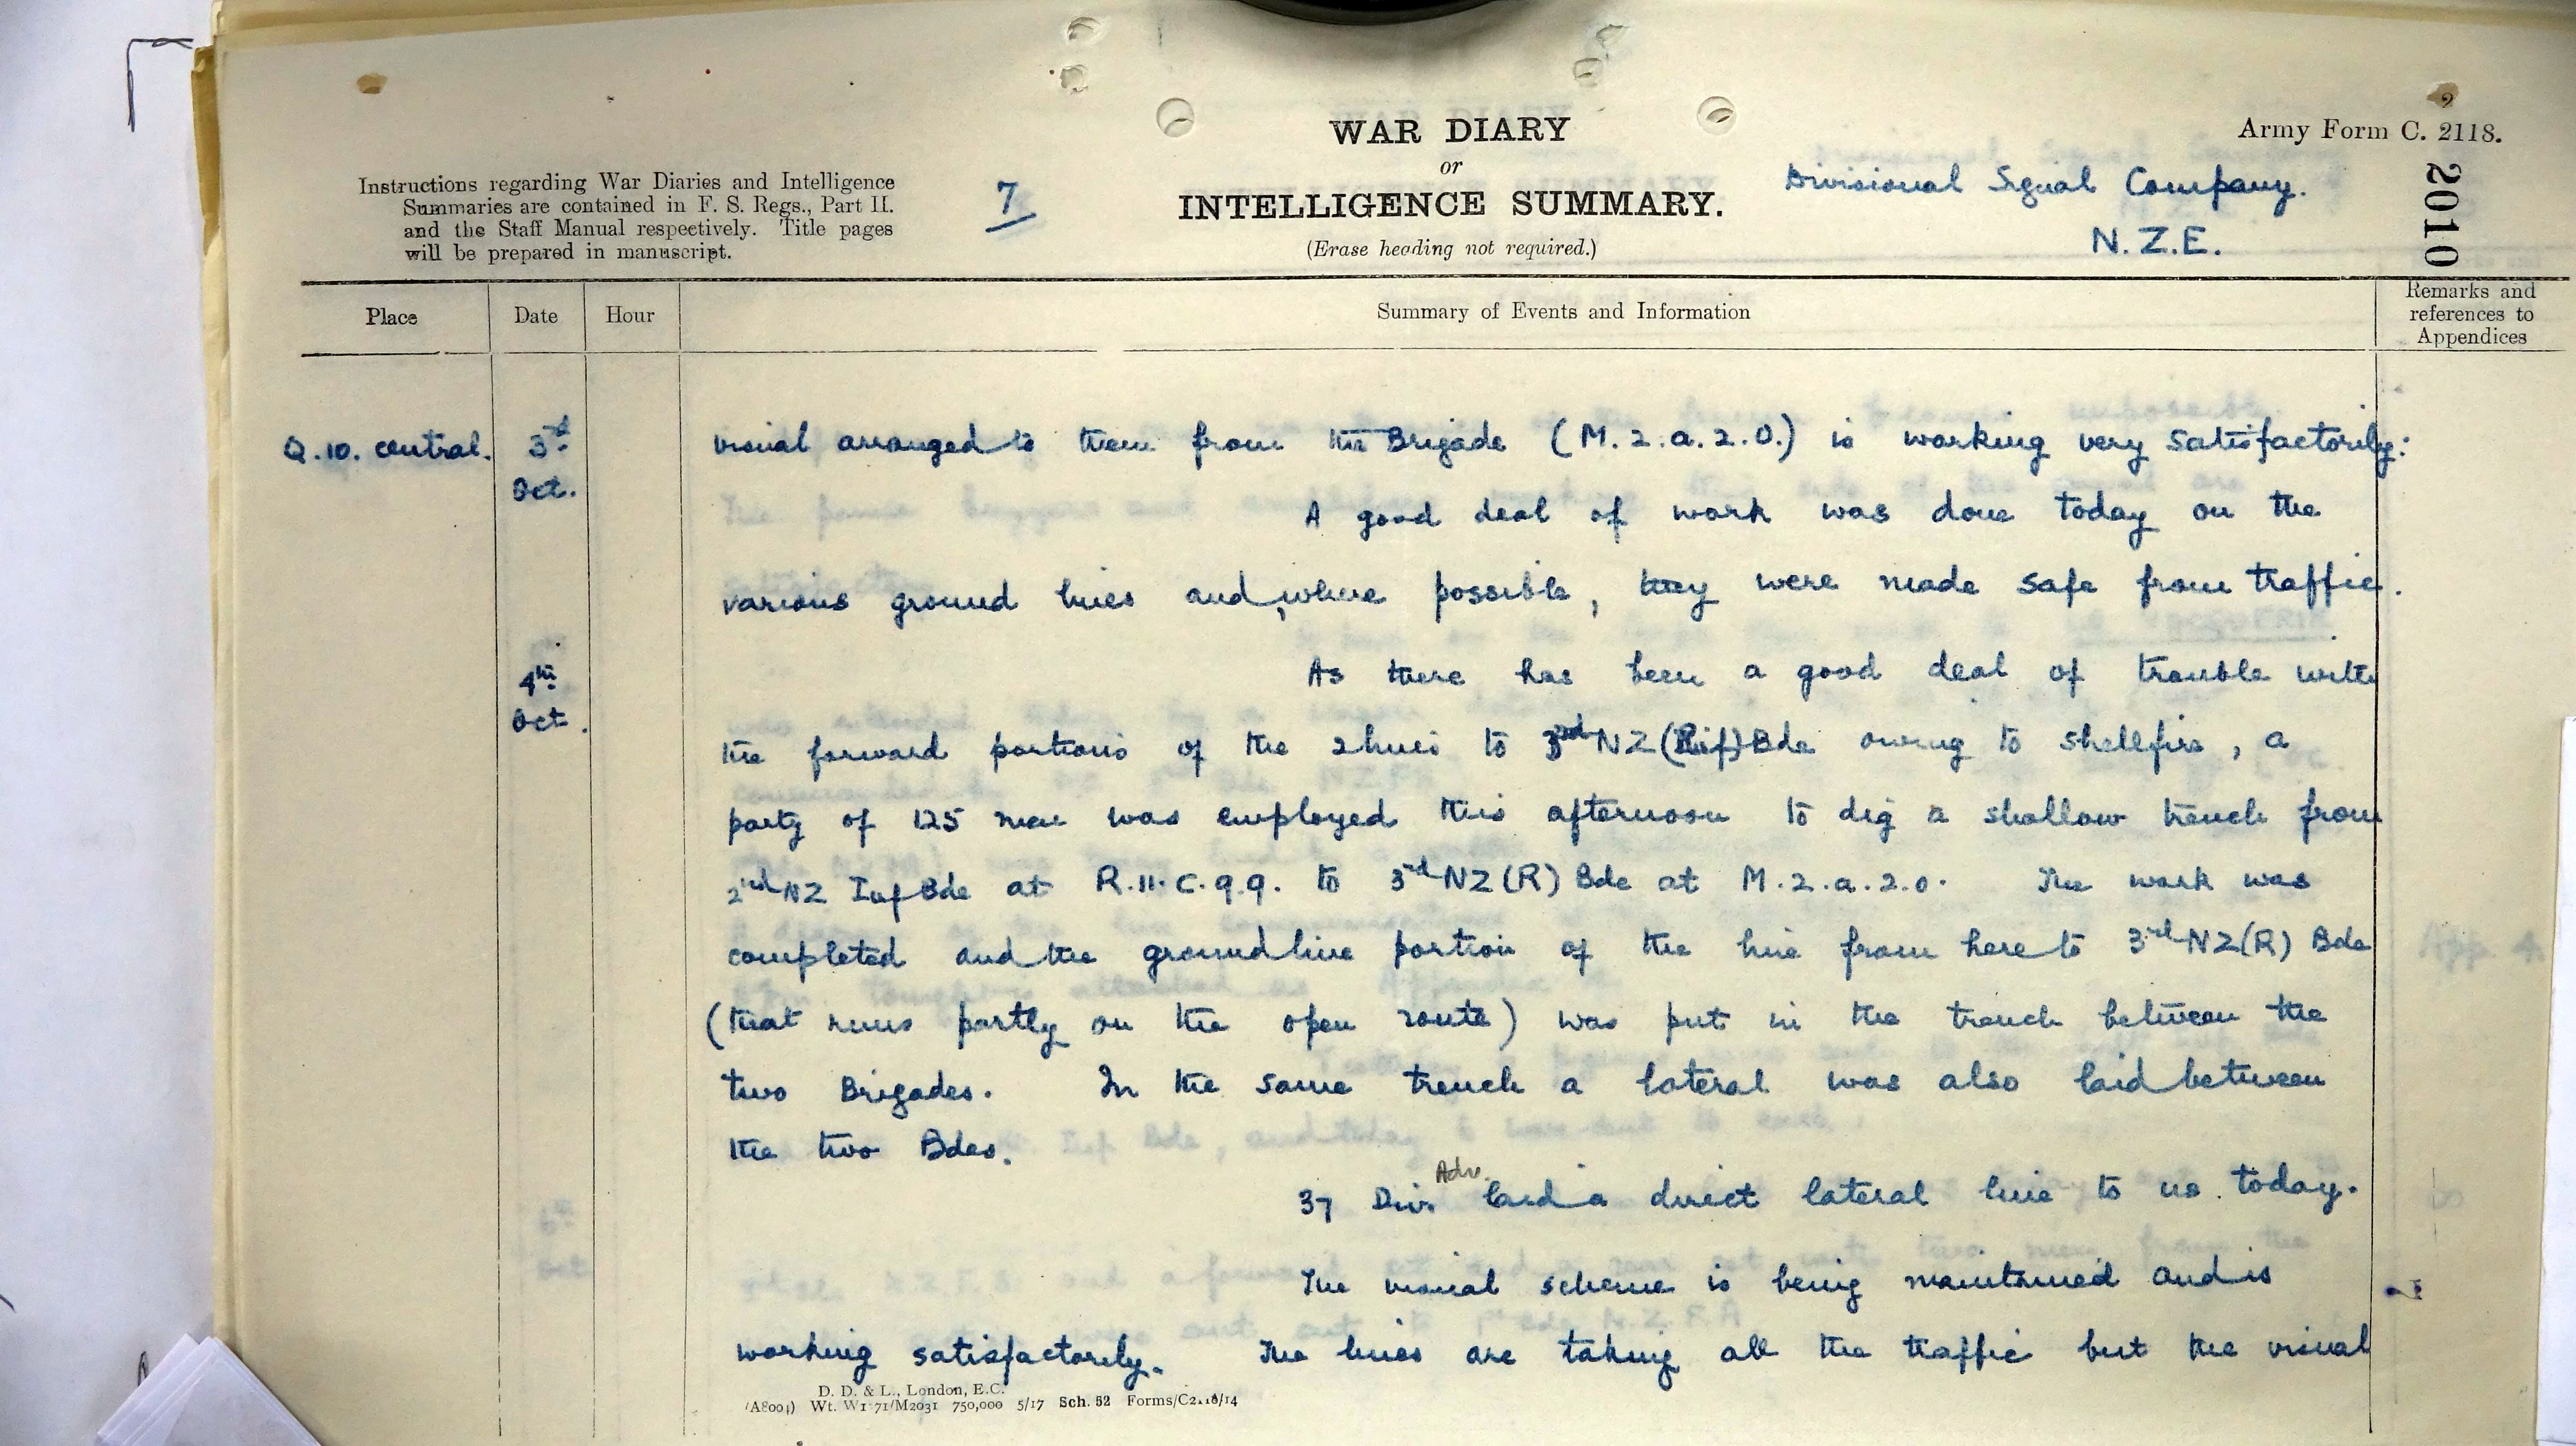 Army Form C. 2118.
WAR DIARY
or
INTELLIGENCE SUMMARY.
(Erase heading not required.)
Instructions regarding War Diaries and Intelligence
Summaries are contained in F. S. Regs., Part II.
and the Staff Manual respectively. Title pages
will be prepared in manuscript.
7
Divisional Signal Company.
N.Z.E.
2010
Place Date Hour Summary of Events and Information Remarks and
references to
Appendices
Q.10. central. 3rd visual arranged to them from the Brigade (M.2.a.2.0.) is working very satisfactorily:
Oct.
A good deal of work was done today on the
various ground lines and, where possible, they were made safe from traffic.
4th As there has been a good deal of trouble with
Oct.
the forward portions of the 2 lines to 3rd NZ(Rif) Bde owing to shellfire, a
party of 125 men was employed this afternoon to dig a shallow trench from
2nd NZ Inf Bde at R.11.c.9.9. to 3rd NZ(R) Bde at M.2.a.2.0. The work was
completed and the groundline portion of the line from here to 3rd NZ(R) Bde
(that runs partly on the open route) was put in the trench between the
two Brigades. In the same trench a lateral was also laid between
the two Bdes.
Adv.
37 Div laid a direct lateral line to us today.
The visual scheme is being maintained and is
working satisfactorily. The lines are taking all the traffic but the visual
D. D. & L., London, E.C.
(A8004) Wt. W1771/M2031 750,000 5/17 Sch. 52 Forms/C2118/14